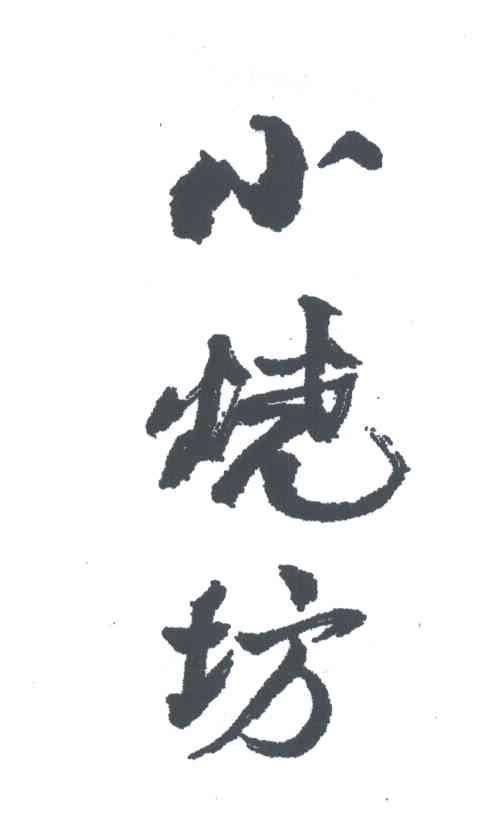 小烧坊